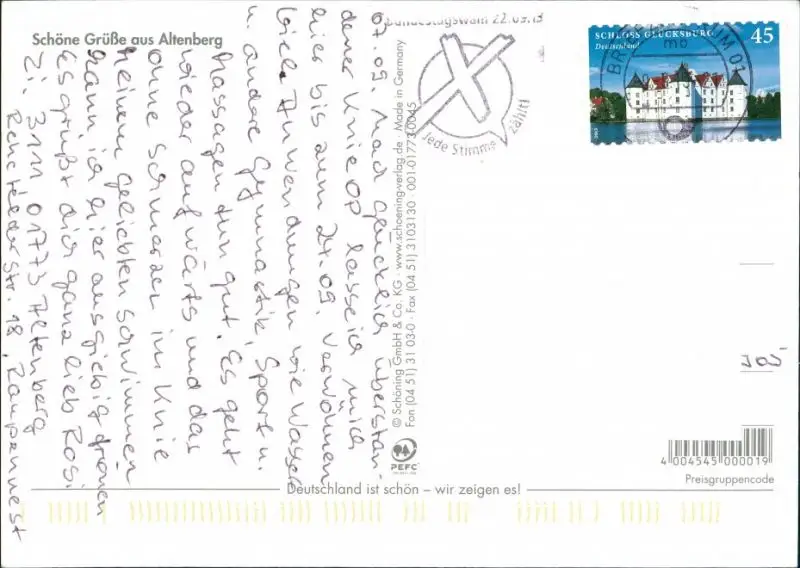 Schöne Grüße aus Altenberg
07.09. Nach glücklich überstan-
dener Knie OP lasse ich mich
hier bis zum 27.09. verwöhnen
Viele Anwendungen wie Wasser
u. andere Gymnastik, Sport u.
Massagen tun gut. Es geht
wieder aufwärts und das
ohne Schmerzen im Knie
Meinem geliebten Schwimmen
kann ich hier ausgiebig frönen
Es grüßt dich ganz lieb Rosi
Zi. 3111 01773 Altenberg
Rehefelder Str. 18, Raupennest
© Schöning GmbH & Co. KG · www.schoeningverlag.de · Made in Germany
Fon (04 51) 31 03-0 · Fax (04 51) 3103130 · 001-01773 0045
PEFC
Bundestagswahl 22.09.13
Jede Stimme zählt!
SCHLOSS GLÜCKSBURG 45
Deutschland
01
mb
4 004545 000019
Preisgruppencode
Deutschland ist schön – wir zeigen es!